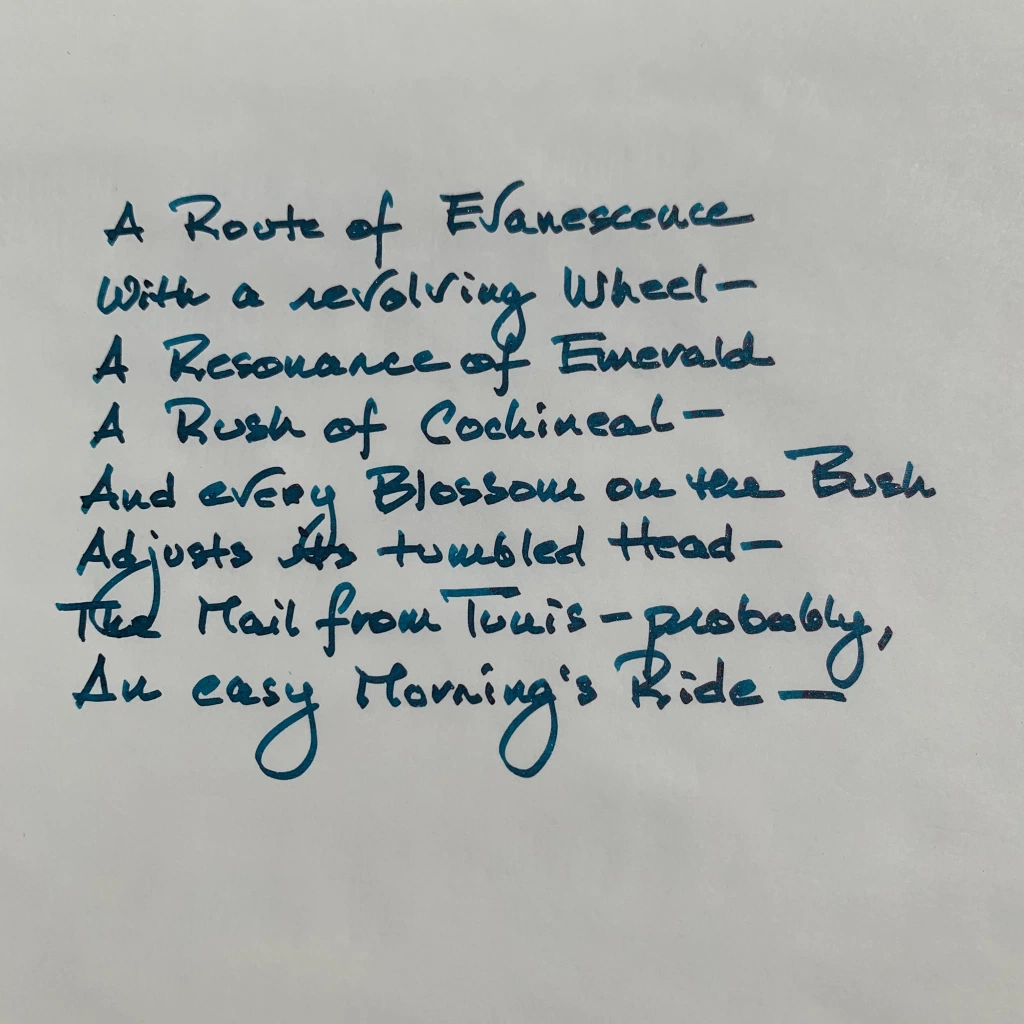 A Route of Evanescence
With a revolving Wheel –
A Resonance of Emerald
A Rush of Cochineal –
And every Blossom on the Bush
Adjusts its tumbled Head –
The Mail from Tunis – probably,
An easy Morning's Ride —